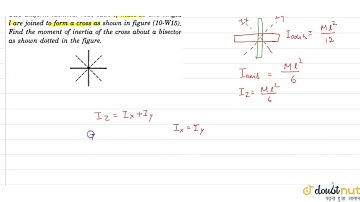 l are joined to form a cross as shown in figure (10-W15).
Find the moment of inertia of the cross about a bisector
as shown dotted in the figure.
I axis = Ml²/12
I axis = Ml²/6
I_Z = Ml²/6
I_Z = I_x + I_y
I_x = I_y
doubtnut